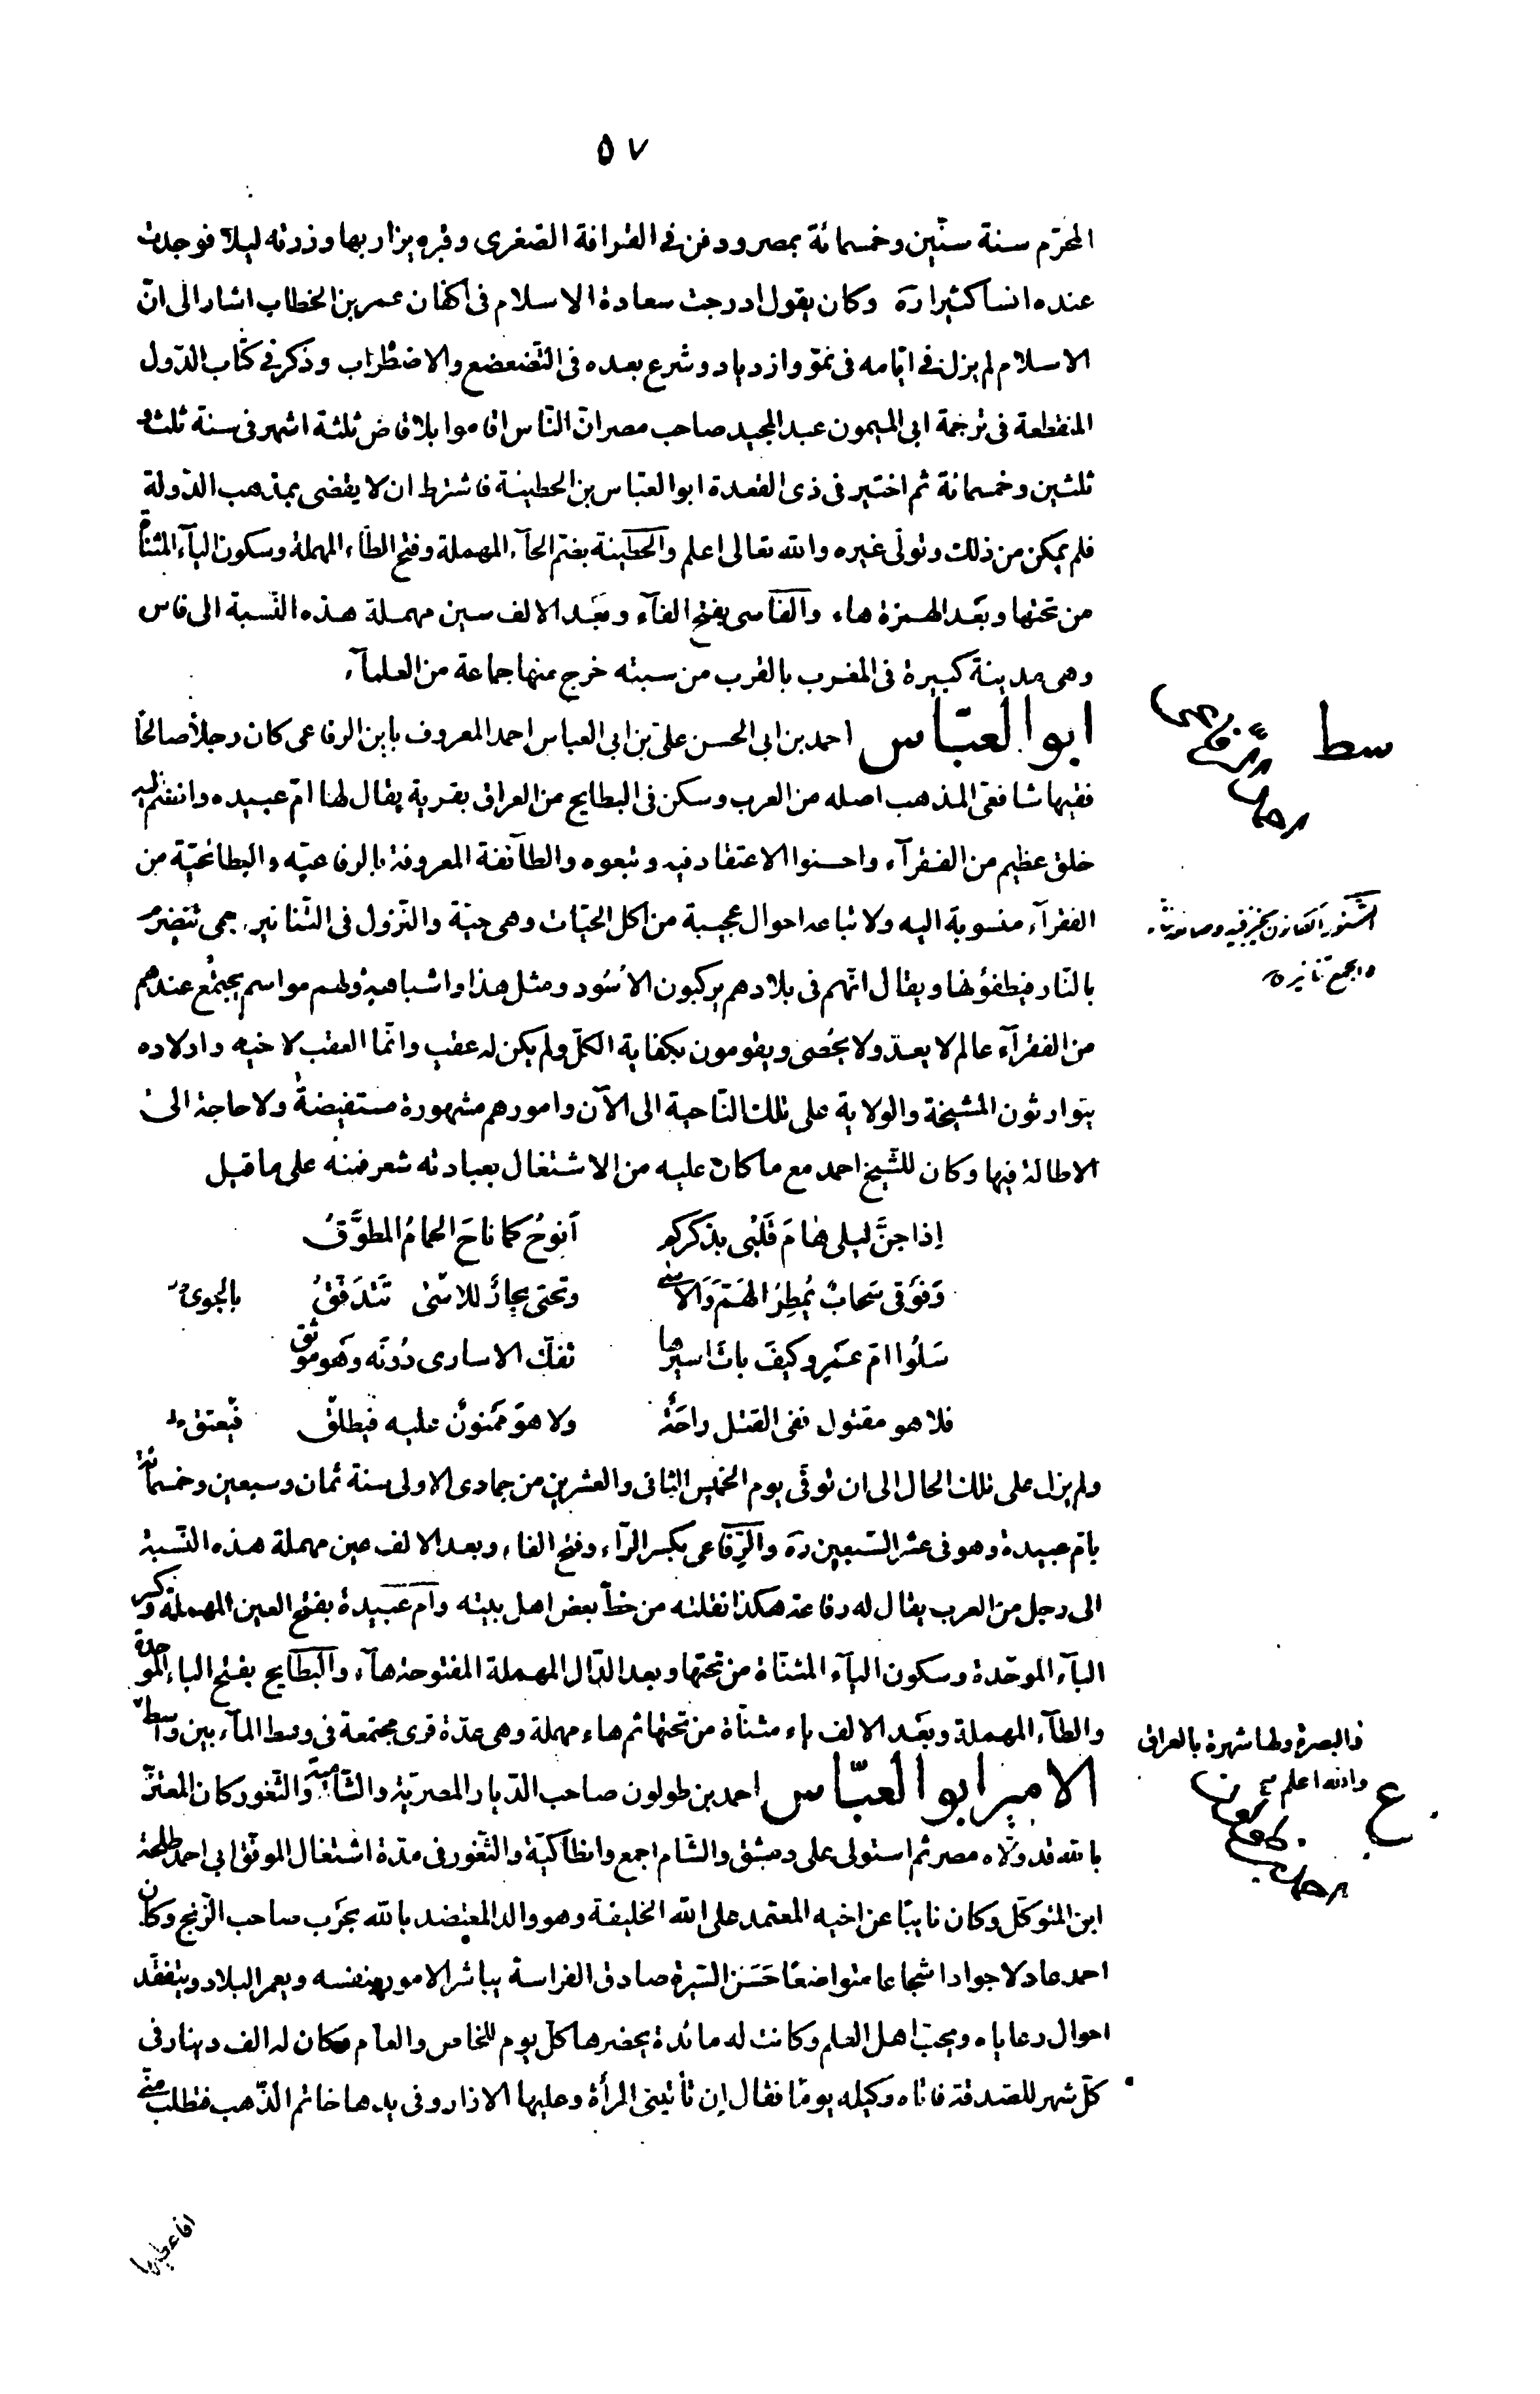 ٥٧
المحرّم سنة ستّين وخمسمائة بمصر ودفن فى القرافة الصّغرى وقبره يزار بها وزرته ليلًا فوجدت
عنده انسا كثيرا رَه وكان يقول ادرجت سعادة الاسلام فى اكفان عمر بن الخطاب اشار الى انّ
الاسلام لم يزل فى ايّامه فى نموّ وازدياد وشرع بعده فى التّضعضع والاضطراب وذكر فى كتاب الدّول
المنقطعة فى ترجمة ابى الميمون عبد المجيد صاحب مصر انّ النّاس اقاموا بلا قاض ثلثة اشهر فى سنة ثلث و
ثلثين وخمسمائة ثم اختير فى ذى القعدة ابو العبّاس بن الحطيئة فاشترط ان لا يقضى بمذهب الدّولة
فلم يمكن من ذلك وتولّى غيره والله تعالى اعلم والحطيئة بضمّ الحآء المهملة وفتح الطّاء المهملة وسكون اليآء المثنّاة
من تحتها وبعد الهمزة هاء والفاسى بفتح الفآء وبعد الالف سين مهملة هذه النّسبة الى فاس
وهى مدينة كبيرة فى المغرب بالقرب من سبته خرج منها جماعة من العلمآء
سط
ابو العبّاس احمد بن ابى الحسن علىّ بن ابى العباس احمد المعروف بابن الرفاعى كان رجلًا صالحًا
فقيها شافعىّ المذهب اصله من العرب وسكن فى البطايح من العراق بقرية يقال لها امّ عبيده وانضمّ اليه
خلق عظيم من الفقرآء واحسنوا الاعتقاد فيه وتبعوه والطآئفة المعروفة بالرفاعيّه والبطائحيّة من
الفقرآء منسوبة اليه ولاتباعه احوال عجيبة من اكل الحيّات وهى حيّة والنّزول فى التّنانير وهى تتضرّم
والجمع تنانير
بالنّار فيطفؤنها ويقال انّهم فى بلادهم يركبون الأسُود ومثل هذا واشباهه ولهم مواسم يجتمع عندهم
من الفقرآء عالم لا يعدّ ولا يحُصى ويقومون بكفاية الكلّ ولم يكن له عقب وانّما العقب لاخيه واولاده
يتوارثون المشيخة والولاية على تلك النّاحية الى الآن وامورهم مشهورة مستفيضةٌ ولا حاجة الى
الاطالة فيها وكان للشّيخ احمد مع ما كان عليه من الاشتغال بعبادته شعر فمنه على ما قيل
إذا جنَّ ليلى هامَ قَلبْى بذكركم أنوحُ كما ناحَ الحمامُ المطوَّقُ
وَفَوْقى سَحابٌ يُمطِرُ الهَمّ وَالاسى وتحتى بحارٌ للاسَى تَتَدَفّقُ بالجوى
سَلُوا امّ عمَرٍو كيفَ باتَ اسيرها تفكّ الاسارى دُونَه وهو موثق
فلا هو مقتول ففى القتل راحَةٌ ولا هوَ ممَنونٌ عليه فيطلقّ فيعتق
ولم يزل على تلك الحال الى ان توفّى يوم الخميس الثانى والعشرين من جمادى الاولى سنة ثمان وسبعين وخمسمائة
بامّ عبيدة وهو فى عشر السّبعين رَه والرّفاعى بكسر الرّاء وفتح الفاء وبعد الالف عين مهملة هذه النّسبة
الى رجل من العرب يقال له رفاعة هكذا نقلته من خطّ بعض اهل بيته وامّ عبيدة بفتح العين المهملة وكسر
البآء الموحّدة وسكون اليآء المثنّاة من تحتها وبعد الدّال المهملة المفتوحة هآء والبطايح بفتح الباء الموحدة
والطآء المهملة وبعد الالف ياء مثنّاة من تحتها ثم حاء مهملة وهى عدّة قرى مجتمعة فى وسط المآء بين واسط
والبصرة ولها شهرة بالعراق
والله اعلم
ع
الامير ابو العبّاس احمد بن طولون صاحب الدّيار المصريّة والشّاميّة والثّغور كان المعتزّ
بالله قد ولّاه مصر ثم استولى على دمشق والشّام اجمع وانطاكيّة والثّغور فى مدّة اشتغال الموفّق ابى احمد طلحة
ابن المتوكّل وكان نايبًا عن اخيه المعتمد على الله الخليفة وهو والد المعتضد بالله بحَرب صاحب الزّنج وكان
احمد عادلا جوادا شجاعا متواضعًا حَسَن السّيرة صادق الفراسة يباشر الامور بنفسه ويعمر البلاد ويتفقّد
احوال رعاياه ويحبّ اهل العلم وكانت له مائدة يحضرها كلّ يوم للخاص والعام وكان له الف دينار فى
كلّ شهر للصّدقة فاتاه وكيله يومًا فقال إن تأتينى المرأة وعليها الازار وفى يدها خاتم الذّهب فتطلب منّى
افاعطيها